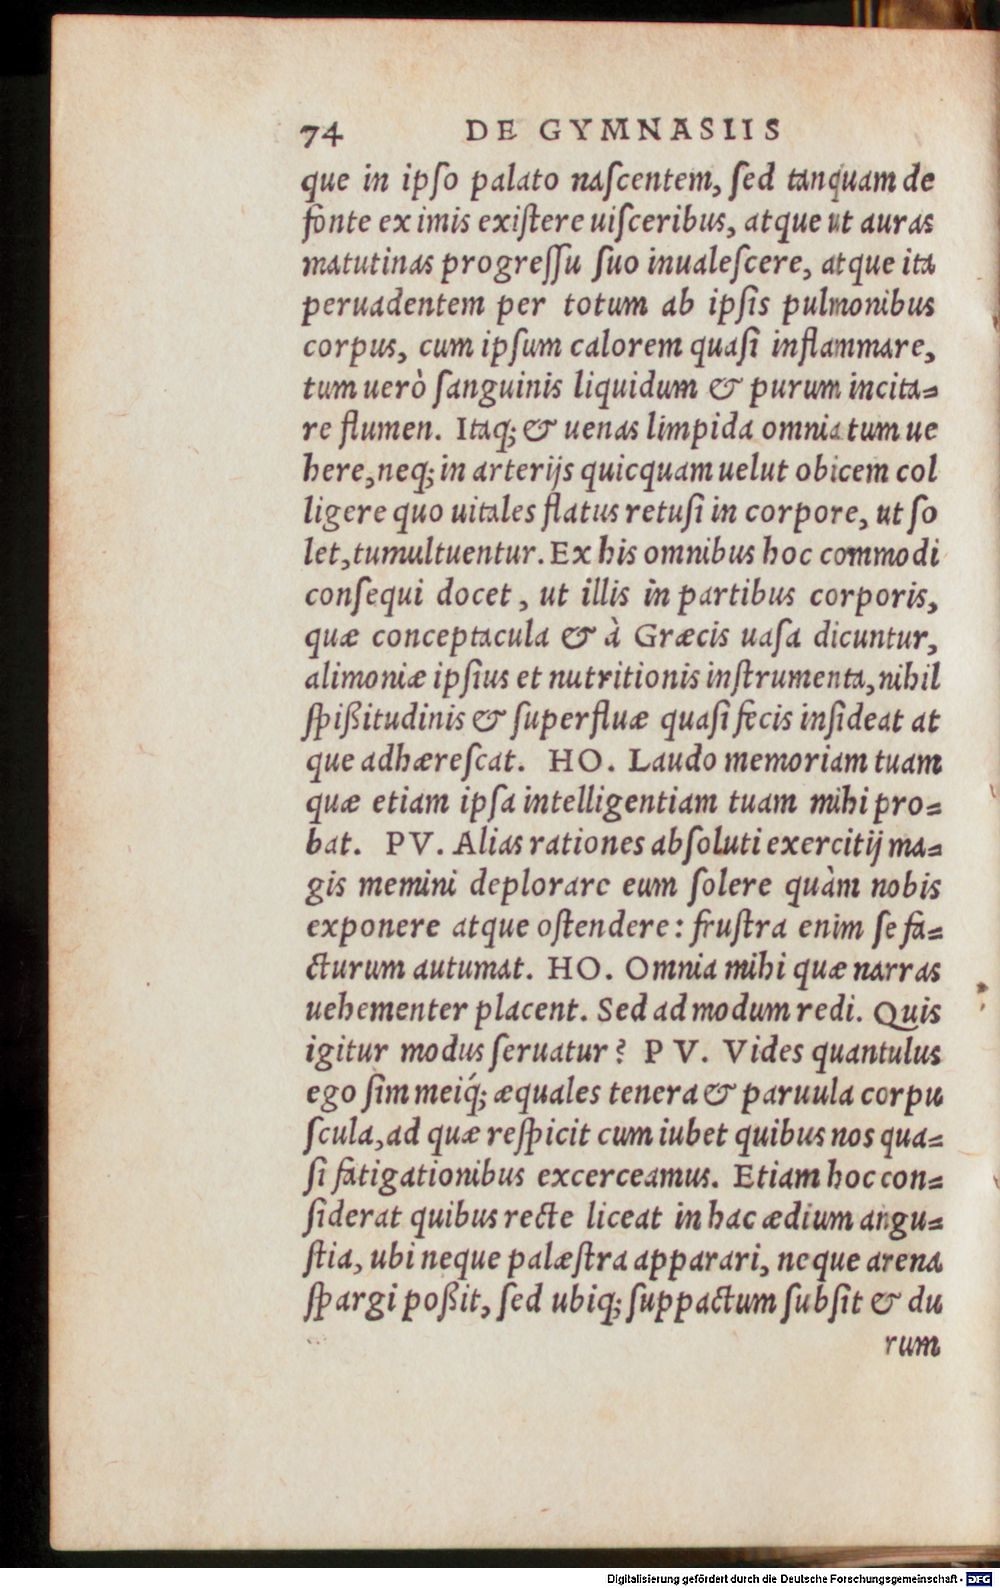 74 DE GYMNASIIS
que in ipſo palato naſcentem, ſed tanquam de
fonte ex imis exiſtere uiſceribus, atque ut auras
matutinas progreſſu ſuo inualeſcere, atque ita
peruadentem per totum ab ipſis pulmonibus
corpus, cum ipſum calorem quaſi inflammare,
tum uerò ſanguinis liquidum & purum incita=
re flumen. Itaq; & uenas limpida omnia tum ue
here, neq; in arterijs quicquam uelut obicem col
ligere quo uitales flatus retuſi in corpore, ut ſo
let, tumultuentur. Ex his omnibus hoc commodi
conſequi docet, ut illis in partibus corporis,
quæ conceptacula & à Græcis uaſa dicuntur,
alimoniæ ipſius et nutritionis inſtrumenta, nihil
ſpißitudinis & ſuperfluæ quaſi fecis inſideat at
que adhæreſcat. HO. Laudo memoriam tuam
quæ etiam ipſa intelligentiam tuam mihi pro=
bat. PV. Alias rationes abſoluti exercitij ma=
gis memini deplorare eum ſolere quàm nobis
exponere atque oſtendere: fruſtra enim ſe fa=
cturum autumat. HO. Omnia mihi quæ narras
uehementer placent. Sed ad modum redi. Quis
igitur modus ſeruatur? PV. Vides quantulus
ego ſim meiq́; æquales tenera & paruula corpu
ſcula, ad quæ reſpicit cum iubet quibus nos qua=
ſi fatigationibus excerceamus. Etiam hoc con=
ſiderat quibus recte liceat in hac ædium angu=
ſtia, ubi neque palæſtra apparari, neque arena
ſpargi poßit, ſed ubiq; ſuppactum ſubſit & du
rum
Digitalisierung gefördert durch die Deutsche Forschungsgemeinschaft - DFG